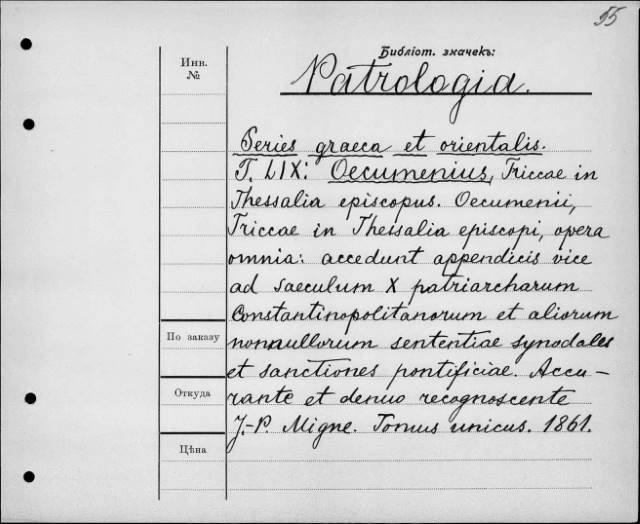 55
Библіот. значекъ:
Инв.
№
Patrologia.
Series graeca et orientalis.
T. LIX: Oecumenius, Triccae in
Thessalia episcopus. Oecumenii,
Triccae in Thessalia episcopi, opera
omnia: accedunt appendicis vice
ad saeculum X patriarcharum
Constantinopolitanorum et aliorum
По заказу
nonnullorum sententiae synodales
et sanctiones pontificiae. Accu-
Откуда
rante et denuo recognoscente
J.-P. Migne. Tomus unicus. 1861.
Цѣна